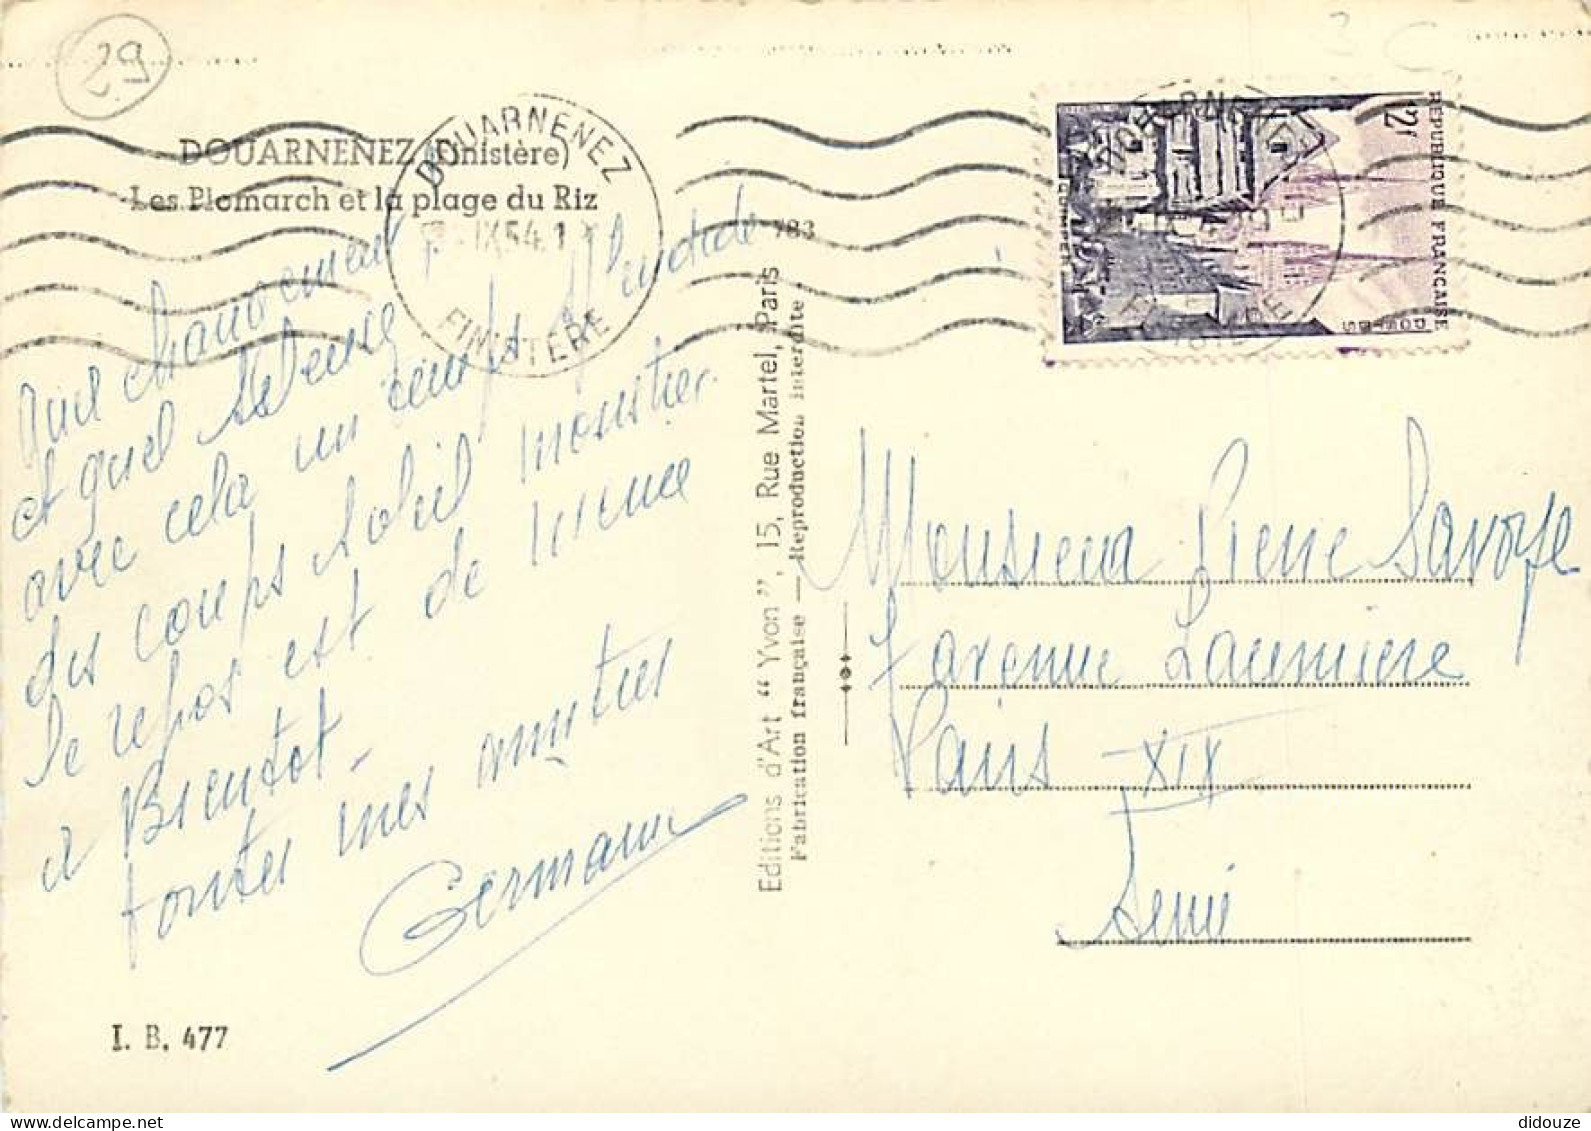 29
3 C
DOUARNENEZ (Finistère)
Les Plomarch et la plage du Riz
DOUARNENEZ
IX 54.1
FINISTERE
783
REPUBLIQUE FRANÇAISE
12f
Quel changement
et quel silence
avec cela un temps splendide
des coups soleil monstier.
le repos est de
a Bientot -
toutes mes amities
Germaine
I. B. 477
Editions d'Art “Yvon”, 15, Rue Martel, Paris
Fabrication française — Reproduction interdite
Monsieur Pierre Savoye
7 avenue Laumiere
Paris XIX
Seine
didouze